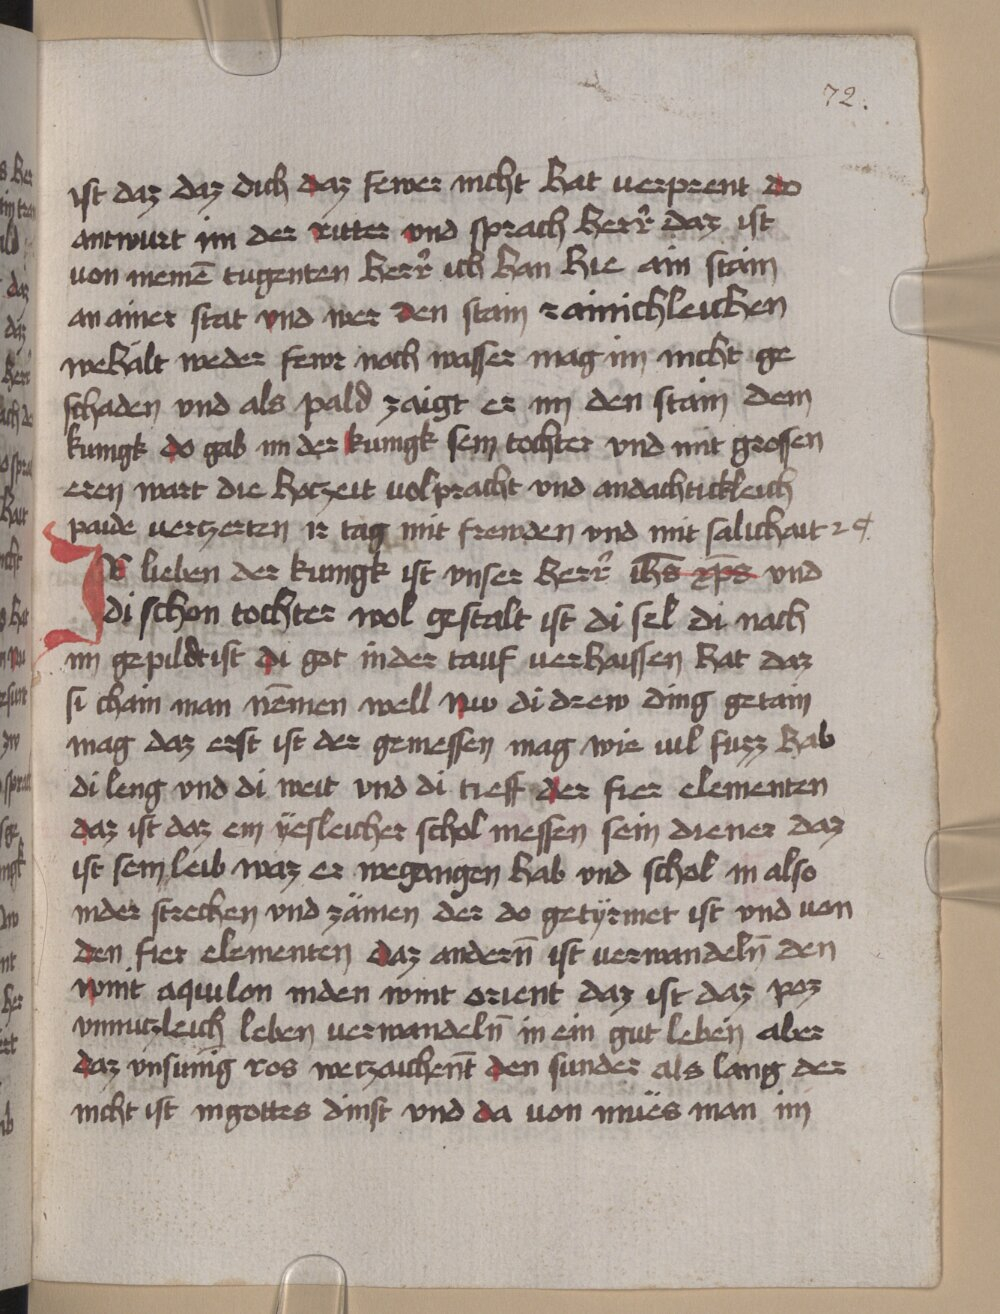 72.
ist daz daz dich daz fewer nicht hat verprent do
antwurt im der ritter vnd sprach herr̃ daz ist
von meinẽ tugenten herr̃ ich han hie ain stain
an ainer stat vnd wer den stain rainichleichen
wehält weder fewr noch wasser mag im nicht ge
schaden vnd als pald zaigt er im den stain dem
kunigk do gab im der kunigk sein tochter vnd mit grossen
eren wart die hoczeit volpracht vnd andachtickleich
paide verczerten ir tag mit frewden vnd mit salichait ꝛc
Ir lieben der kunigk ist vnser herr̃ ihs̄ xp̄s vnd
di schon tochter wol gestalt ist di sel di nach
im gepildt ist di got in der tauf verhaissen hat daz
si chain man nēmen well nw di drew ding getain
mag daz erst ist der gemessen mag wie vil fuzz hab
di leng vnd di weit vnd di tieff der fier elementen
daz ist daz ein yesleicher schol messen sein diener daz
ist sein leib waz er wegangen hab vnd schol in also
nider strecken vnd zämen der do getyrmet ist vnd von
den fier elementen daz andern̄ ist verwandeln̄ den
wint aquilon in den wint orient daz ist daz poz
vnnuczleich leben verwandeln̄ in ein gut leben aber
daz vnsinnig ros weczaichent̄ den sunder als lang der
nicht ist in gottes dinst vnd da von mües man im